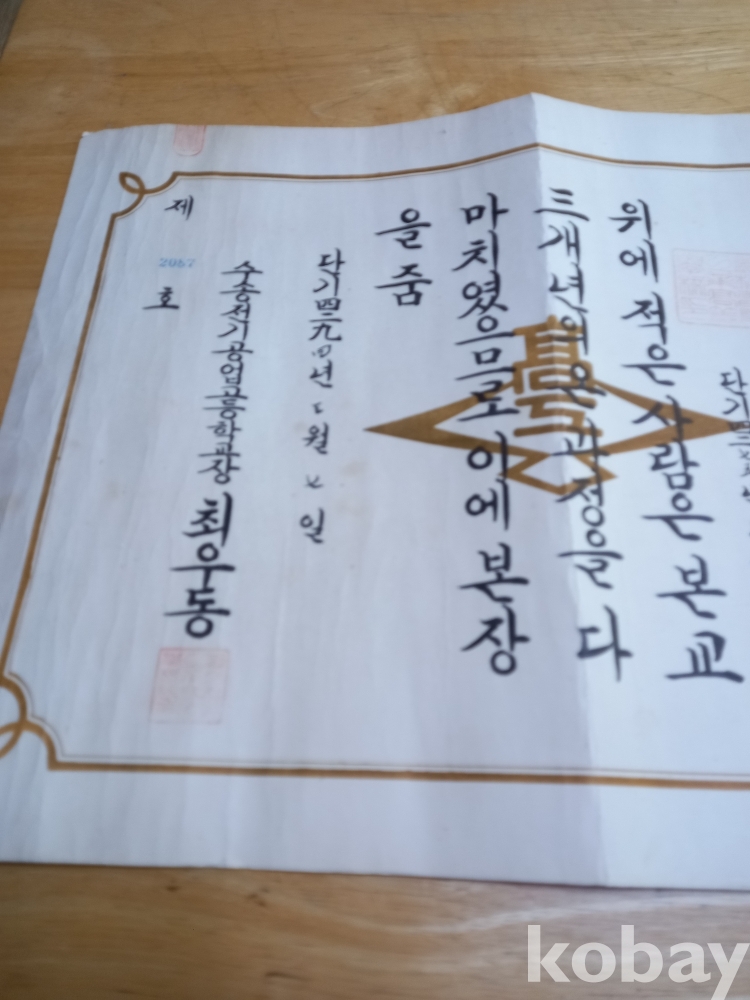 단기四二
위에 적은 사람은 본교
三개년의 온 과정을 다
마치였으므로 이에 본장
을 줌
단기四二九四년 월 일
수송전기공업고등학교장 최우동
제 호
kobay